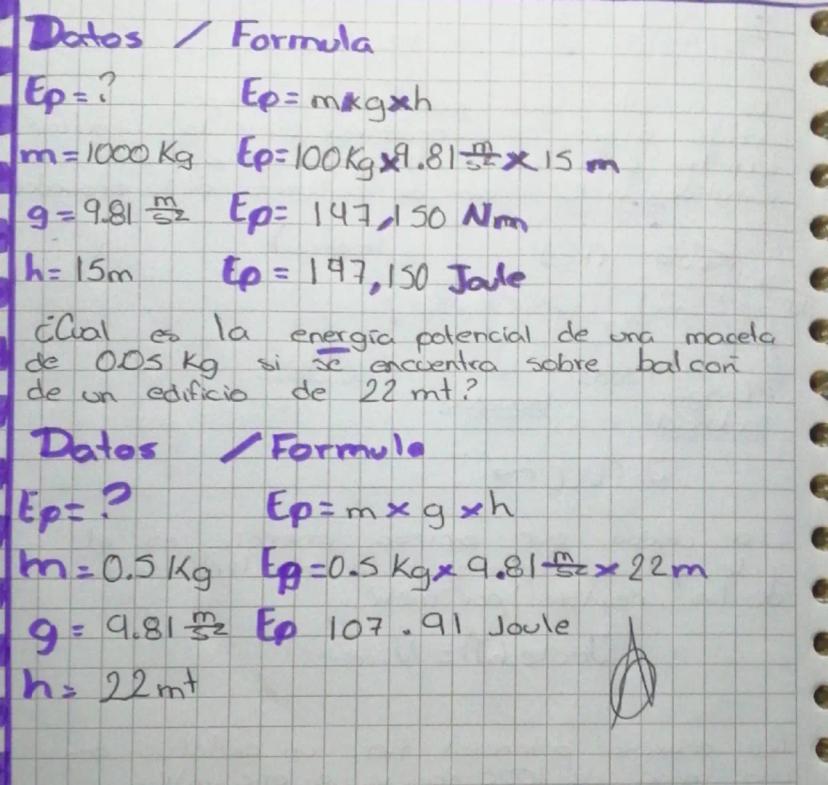 Datos / Formula
Ep = ? Ep = m x g x h
m = 1000 Kg Ep = 100 Kg x 9.81 m/s2 x 15 m
g = 9.81 m/s2 Ep = 147,150 Nm
h = 15m Ep = 147,150 Joule
¿Cual es la energía potencial de una maceta
de 005 Kg si se encuentra sobre balcon
de un edificio de 22 mt?
Datos / Formula
Ep = ? Ep = m x g x h
m = 0.5 Kg Ep = 0.5 Kg x 9.81 m/s2 x 22 m
g = 9.81 m/s2 Ep 107.91 Joule
h = 22 mt